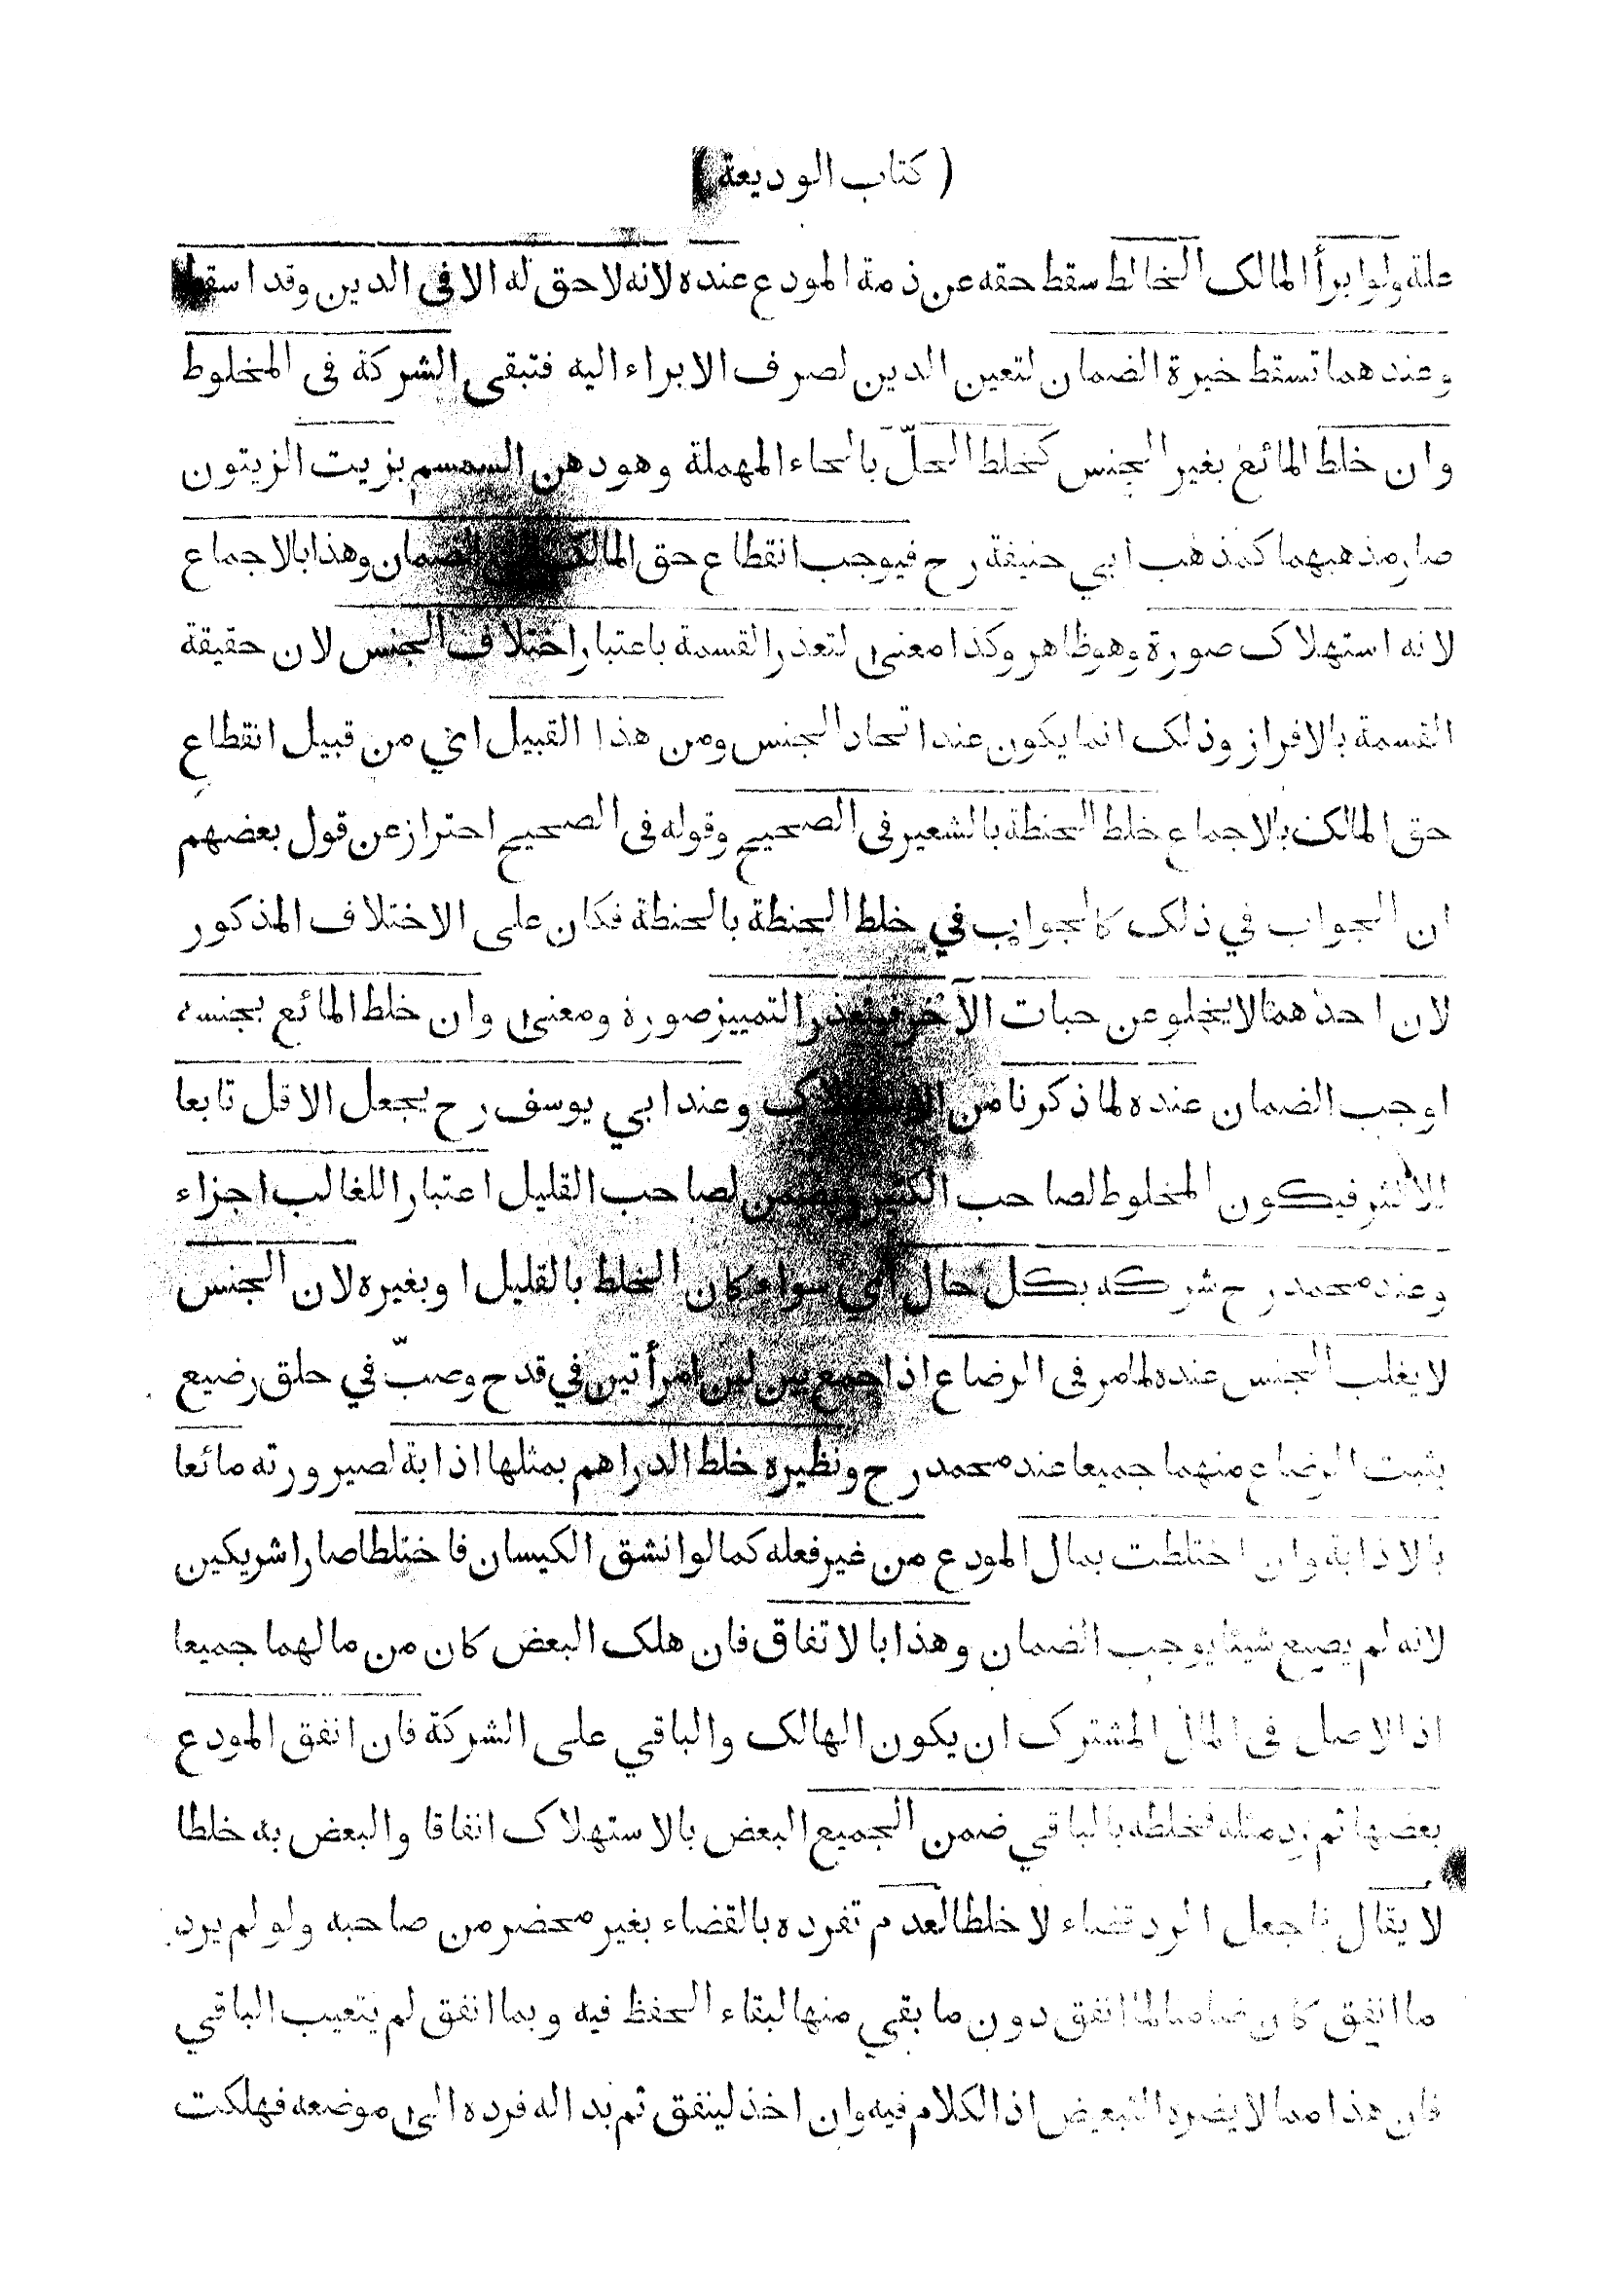 ( كتاب الوديعة )
علة ولو ابرأ المالك الخالط سقط حقه عن ذمة المودع عنده لانه لا حق له الا فى الدين وقد اسقط
وعندهما تسقط خيرة الضمان لتعين الدين لصرف الابراء اليه فتبقى الشركة فى المخلوط
وان خلط المائع بغير الجنس كخلط الحلّ بالحاء المهملة وهو دهن السمسم بزيت الزيتون
صار مذهبهما كمذهب ابي حنيفة رح فيوجب انقطاع حق المالك الضمان وهذا بالاجماع
لانه استهلاك صورة وهو ظاهر وكذا معنى لتعذر القسمة باعتبار اختلاف الجنس لان حقيقة
القسمة بالافراز وذلك انما يكون عند اتحاد الجنس ومن هذا القبيل اي من قبيل انقطاع
حق المالك بالاجماع خلط الحنطة بالشعير فى الصحيح وقوله فى الصحيح احتراز عن قول بعضهم
ان الجواب في ذلك كالجواب في خلط الحنطة بالحنطة فكان على الاختلاف المذكور
لان احدهما لا يخلو عن حبات الآخر فتعذر التمييز صورة ومعنى وان خلط المائع بجنسه
اوجب الضمان عنده لما ذكرنا من الاستهلاك وعند ابي يوسف رح يجعل الاقل تابعا
للاكثر فيكون المخلوط لصاحب الكثير ويضمن لصاحب القليل اعتبارا للغالب اجزاء
وعند محمد رح شركه بكل حال اي سواء كان الخلط بالقليل او بغيره لان الجنس
لا يغلب الجنس عنده لما مر فى الرضاع اذا جمع بين لبن امرأتين في قدح وصبّ في حلق رضيع
يثبت الرضاع منهما جميعا عند محمد رح ونظيره خلط الدراهم بمثلها اذابة لصيرورته مائعا
بالاذابة وان اختلطت بمال المودع من غير فعله كما لو انشق الكيسان فاختلطا صارا شريكين
لانه لم يصنع شيئا يوجب الضمان وهذا بالاتفاق فان هلك البعض كان من مالهما جميعا
اذ الاصل فى المال المشترك ان يكون الهالك والباقي على الشركة فان انفق المودع
بعضها ثم رد مثله فخلطه بالباقي ضمن الجميع البعض بالاستهلاك انفاقا والبعض به خلطا
لا يقال فاجعل الرد قضاء لا خلطا لعدم تفرده بالقضاء بغير محضر من صاحبه ولو لم يرد
ما انفق كان ضامنا لما انفق دون ما بقي منها لبقاء الحفظ فيه وبما انفق لم يتعيب الباقي
فان هذا مما لا يضره التبعيض اذ الكلام فيه وان اخذ لينفق ثم بدا له فرده الى موضعه فهلكت